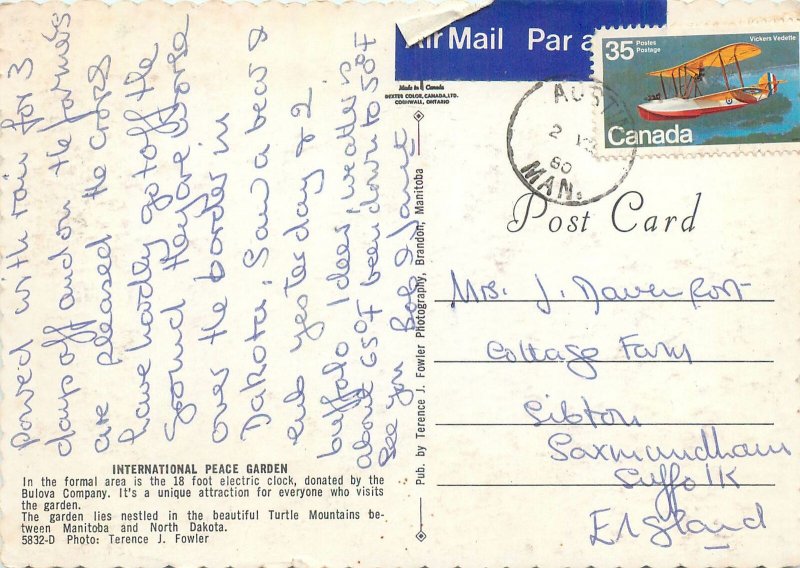 poured with rain for 3
days off and on the farmers
are pleased the crops
have hardly got off the
ground they are worse
over the border in
Dakota. Saw a bear &
cub yesterday & 2
buffalo 1 deer, weather is
about 65°F been down to 50°F
See you Bob & Jane
INTERNATIONAL PEACE GARDEN
In the formal area is the 18 foot electric clock, donated by the
Bulova Company. It's a unique attraction for everyone who visits
the garden.
The garden lies nestled in the beautiful Turtle Mountains be-
tween Manitoba and North Dakota.
5832-D Photo: Terence J. Fowler
Pub. by Terence J. Fowler Photography, Brandon, Manitoba
Made in Canada
DEXTER COLOR, CANADA, LTD.
CORNWALL, ONTARIO
Air Mail Par a
35 Postes
Postage
Vickers Vedette
Canada
AUST
2
80
MAN.
Post Card
Mrs. J. Davenport
Cottage Farm
Sibton
Saxmundham
Suffolk
England